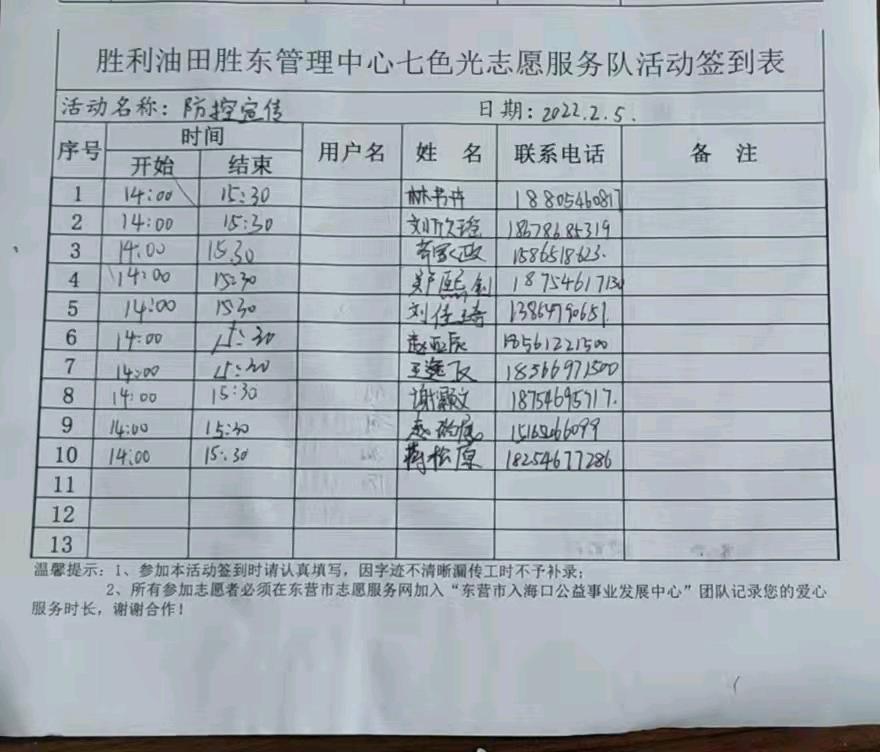 胜利油田胜东管理中心七色光志愿服务队活动签到表
活动名称：防控宣传 日期：2022.2.5.
序号 时间 用户名 姓 名 联系电话 备 注
开始 结束
1 14:00 15:30 18805460817
2 14:00 15:30 刘欣瑶 18678685319
3 14:00 15:30 1586518623.
4 14:00 15:30 郑熙钊 18754617130
5 14:00 15:30 刘佳琦 13864790651
6 14:00 15:30 赵亚辰 18561221500
7 14:00 15:30 王逸飞 18366971500
8 14:00 15:30 谢颖文 18754695717.
9 14:00 15:30
10 14:00 15:30 蒋松原 18254677286
11
12
13
温馨提示：1、参加本活动签到时请认真填写，因字迹不清晰漏传工时不予补录；
2、所有参加志愿者必须在东营市志愿服务网加入“东营市入海口公益事业发展中心”团队记录您的爱心
服务时长，谢谢合作！